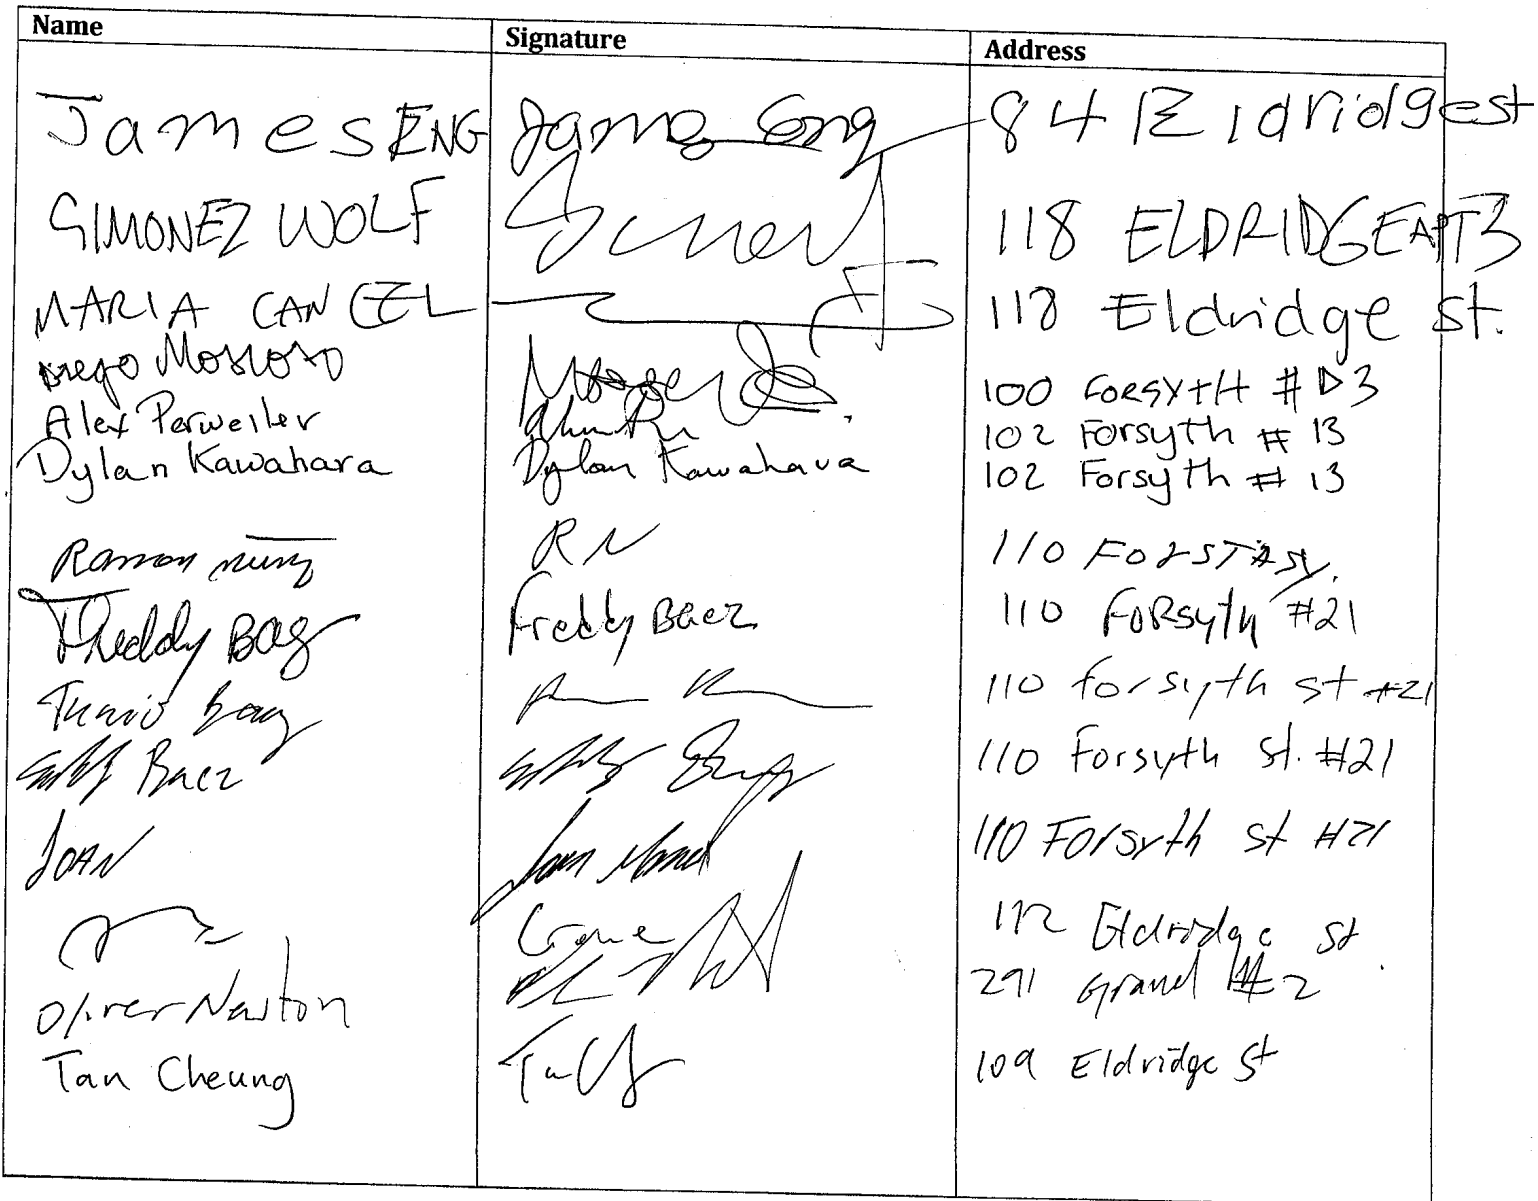 Name Signature Address
James ENG James Eng 84 Eldridge st
SIMONEZ WOLF 118 ELDRIDGE APT 3
MARIA CANCEL 118 Eldridge st.
Diego Moscoso 100 FORSYTH # D3
Alex Perweiler 102 Forsyth # 13
Dylan Kawahara Dylan Kawahara 102 Forsyth # 13
Ramon RN 110
Freddy Baez Freddy Baez 110 FORsyth #21
110 forsyth st #21
Baez 110 Forsyth St. #21
JOAN 110 Forsyth st #21
112 Eldridge St
Oliver Newton 291 Grand #2
Tan Cheung 109 Eldridge St